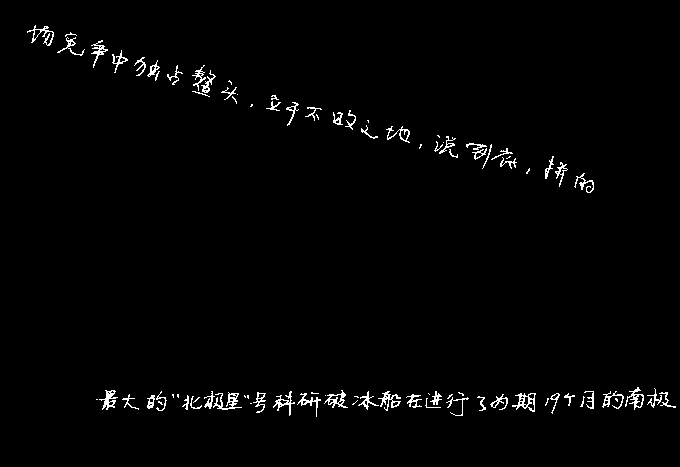 场竞争中独占鳌头，立于不败之地，说到底，拼的
最大的“北极星”号科研破冰船在进行了为期19个月的南极